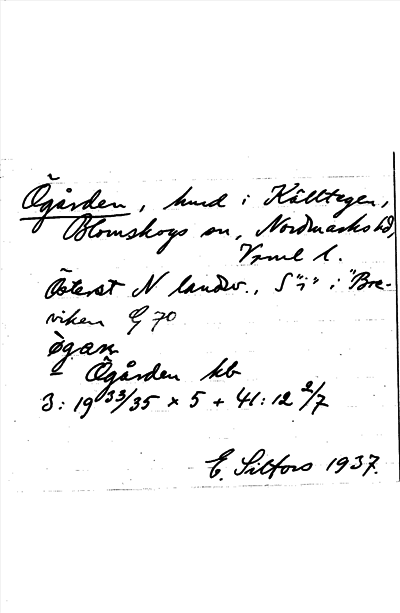 Ögården, hmd i Källtegen,
Blomskogs sn, Nordmarks hd,
Vrml l.
Österst N landsv., S "i" i "Bre-
viken G 70
ögan
- Ögården kb
3:19 33/35 x 5 + 41:12 2/7
E. Silfors 1937.